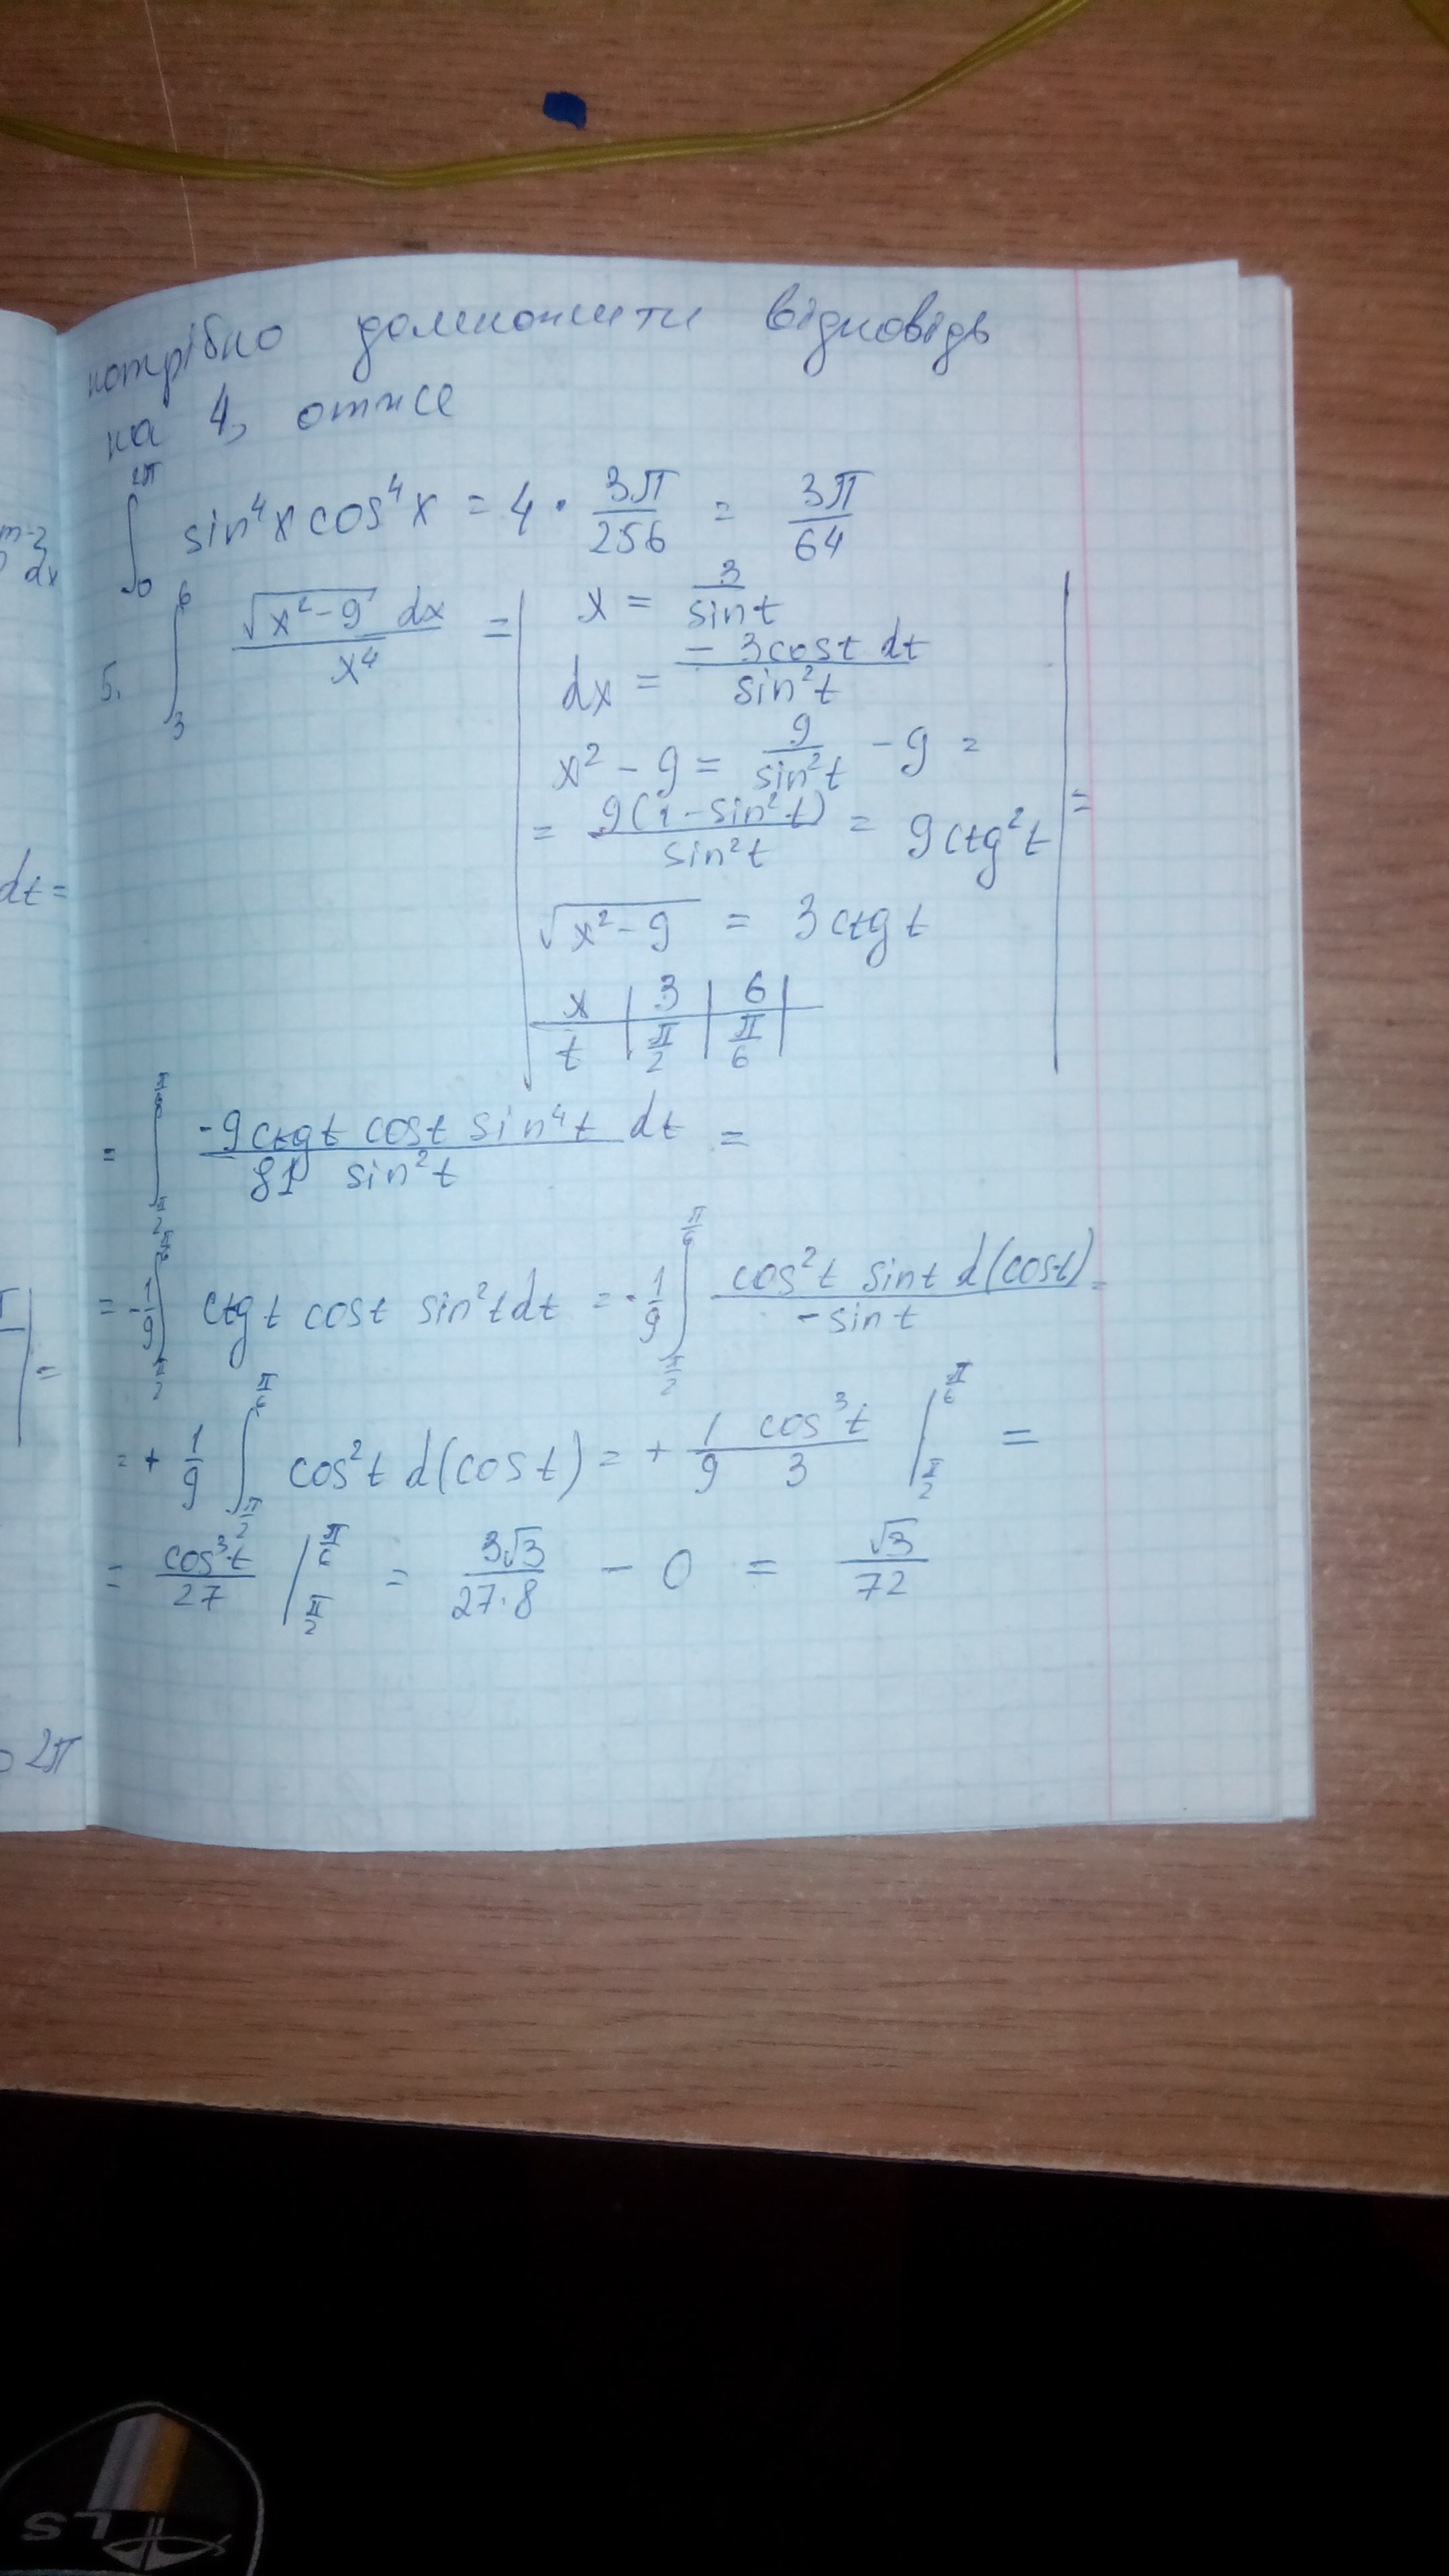 потрібно домножити відповідь
на 4, отже
∫₀^{2π} sin⁴x cos⁴x = 4 · 3π/256 = 3π/64
5. ∫₃^6 √(x²-9) dx / x⁴ = | x = 3/sin t
dx = -3cost dt / sin²t
x² - 9 = 9/sin²t - 9 =
= 9(1-sin²t)/sin²t = 9ctg²t | =
√(x²-9) = 3ctg t
x | 3 | 6 |
t | π/2 | π/6 |
= ∫_{π/2}^{π/6} -9ctgt cost sin⁴t / 81 sin²t dt =
= -1/9 ∫_{π/2}^{π/6} ctgt cost sin²t dt = -1/9 ∫_{π/2}^{π/6} cos²t sint d(cost) / -sint =
= + 1/9 ∫_{π/2}^{π/6} cos²t d(cost) = + 1/9 cos³t/3 |_{π/2}^{π/6} =
= cos³t/27 |_{π/2}^{π/6} = 3√3/27·8 - 0 = √3/72
m-2
dx
dt =
=
2π
LS